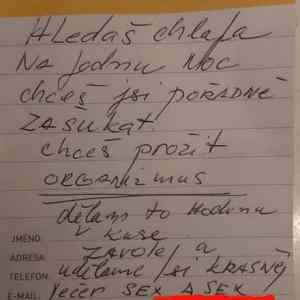 Hledáš chlapa
Na jednu Noc
chceš jsi POŘÁDNĚ
ZASUKAT.
chceš prožít
ORGANIZMUS
dělam to Hodinu
JMÉNO: v kuse.
ADRESA: ZAVOLEJ a
TELEFON: udělame jsi KRASNEJ
E-MAIL: Večer SEX A SEX